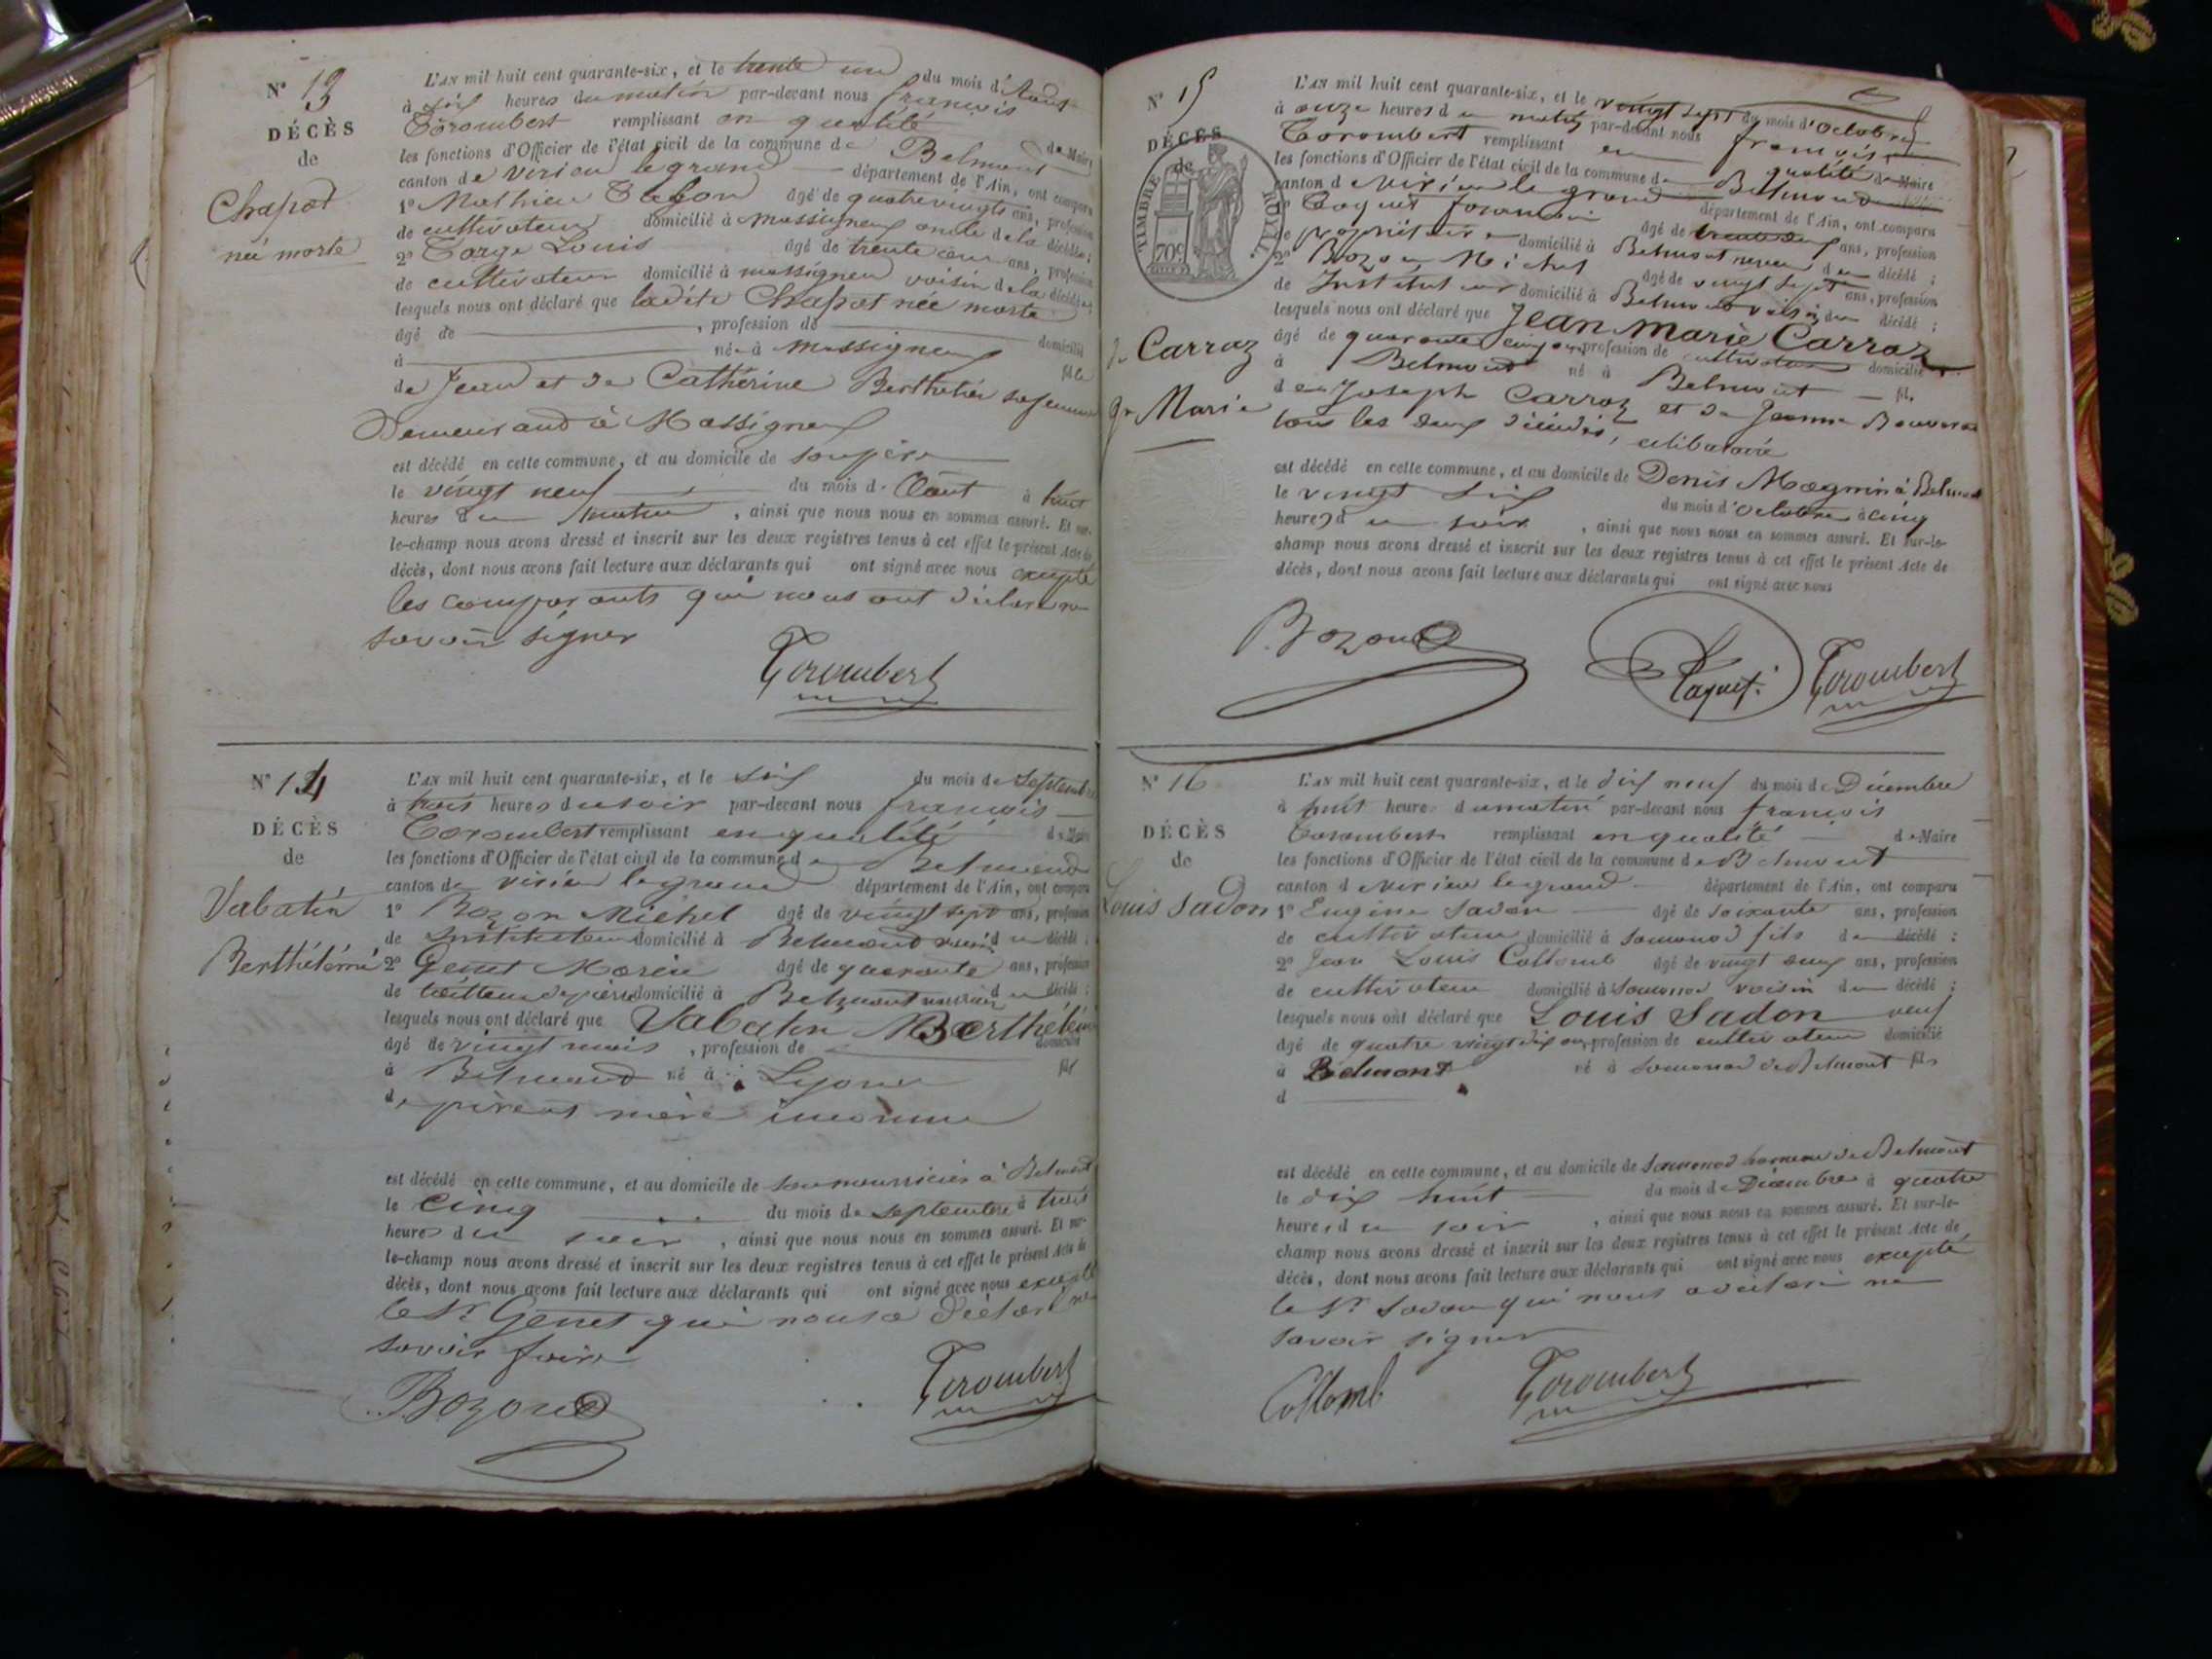 N° 13
DÉCÈS
de
Chapot
née morte
L'AN mil huit cent quarante-six, et le trente un du mois d'Aout
à six heures du matin par-devant nous françois
Corombert remplissant en qualité de Maire
les fonctions d'Officier de l'état civil de la commune de Belmont
canton de virieu le grand département de l'Ain, ont comparu
1° Mathieu âgé de quatrevingts ans, profession
de cultivateur domicilié à massigneu oncle de la décédée ;
2° Louis âgé de trente cinq ans, profession
de cultivateur domicilié à massigneu voisin de la décédée
lesquels nous ont déclaré que ladite Chapot née morte
âgé de , profession de domicilié
à née à massigneu fille
de Jean et de Catherine Berthelier sa femme
Demeurand à Massigneu
est décédé en cette commune, et au domicile de son père
le vingt neuf du mois d'Aout à huit
heures du matin , ainsi que nous nous en sommes assuré. Et sur-
le-champ nous avons dressé et inscrit sur les deux registres tenus à cet effet le présent Acte de
décès, dont nous avons fait lecture aux déclarants qui ont signé avec nous excepté
les comparants qui nous ont déclaré ne
savoir signer
Corombert
N° 14
DÉCÈS
de
Vabatin
Berthélémi
L'AN mil huit cent quarante-six, et le six du mois de Septembre
à trois heures du soir par-devant nous françois
Corombert remplissant en qualité de Maire
les fonctions d'Officier de l'état civil de la commune de Belmond
canton de virieu le grand département de l'Ain, ont comparu
1° Bozon Michel âgé de vingt sept ans, profession
de Instituteur domicilié à Belmond voisin du décédé ;
2° Genet Marin âgé de quarante ans, profession
de tailleur de pierre domicilié à Belmont nourricier du décédé ;
lesquels nous ont déclaré que Vabatin Berthélémi
âgé de vingt mois , profession de domicilié
à Belmond né à Lyon fils
de père et mère inconnu
est décédé en cette commune, et au domicile de son nourricier à Belmont
le cinq du mois de septembre à trois
heures du soir , ainsi que nous nous en sommes assuré. Et sur-
le-champ nous avons dressé et inscrit sur les deux registres tenus à cet effet le présent Acte de
décès, dont nous avons fait lecture aux déclarants qui ont signé avec nous excepté
le Sr Genet qui nous a déclaré ne
savoir faire
Bozon Corombert
N° 15
DÉCÈS
de
TIMBRE ROYAL
70c
Carraz
Marie
L'AN mil huit cent quarante-six, et le vingt sept du mois d'octobre
à onze heures du matin par-devant nous françois
Corombert remplissant en qualité de Maire
les fonctions d'Officier de l'état civil de la commune de Belmond
canton de virieu le grand département de l'Ain, ont comparu
1° âgé de trente deux ans, profession
de propriétaire domicilié à Belmont neveu du décédé ;
2° Bozon Michel âgé de vingt sept ans, profession
de Instituteur domicilié à Belmond voisin du décédé ;
lesquels nous ont déclaré que Jean Marie Carraz
âgé de quarante cinq ans, profession de cultivateur domicilié
à Belmond né à Belmont fils
de Joseph Carraz et de Jeanne
tous les deux décédés, célibataire
est décédé en cette commune, et au domicile de Denis Magnin à Belmont
le vingt six du mois d'octobre à cinq
heures du soir , ainsi que nous nous en sommes assuré. Et sur-le-
champ nous avons dressé et inscrit sur les deux registres tenus à cet effet le présent Acte de
décès, dont nous avons fait lecture aux déclarants qui ont signé avec nous
Bozon Corombert
N° 16
DÉCÈS
de
Louis Sadon
L'AN mil huit cent quarante-six, et le dix neuf du mois de Décembre
à huit heures du matin par-devant nous françois
Corombert remplissant en qualité de Maire
les fonctions d'Officier de l'état civil de la commune de Belmont
canton de virieu le grand département de l'Ain, ont comparu
1° Eugène Sadon âgé de soixante ans, profession
de cultivateur domicilié à Somonod fils du décédé ;
2° Jean Louis Collomb âgé de vingt deux ans, profession
de cultivateur domicilié à Somonod voisin du décédé ;
lesquels nous ont déclaré que Louis Sadon veuf
âgé de quatre vingt dix ans, profession de cultivateur domicilié
à Belmont né à Somonod de Belmont fils
d
est décédé en cette commune, et au domicile de Somonod hameau de Belmont
le dix huit du mois de Décembre à quatre
heures du soir , ainsi que nous nous en sommes assuré. Et sur-le-
champ nous avons dressé et inscrit sur les deux registres tenus à cet effet le présent Acte de
décès, dont nous avons fait lecture aux déclarants qui ont signé avec nous excepté
le Sr Sadon qui nous a déclaré ne
savoir signer
Collomb Corombert